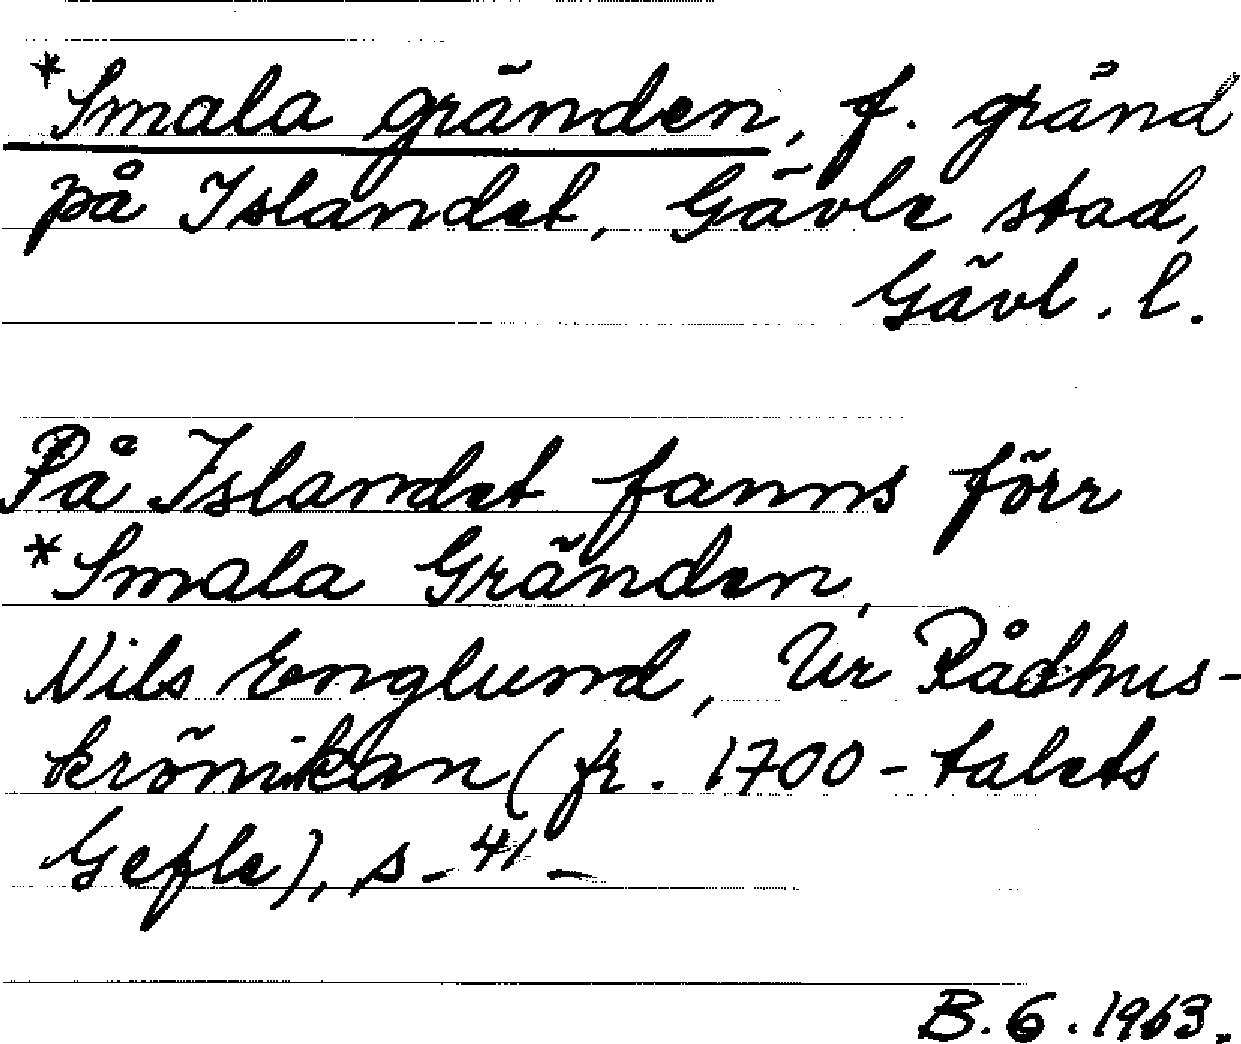 *Smala gränden, f. gränd
på Islandet, Gävle stad,
Gävl. l.
På Islandet fanns förr
*Smala Gränden,
Nils Englund, Ur Rådhus-
krönikan (fr. 1700-talets
Gefle), s. 41.
B. G. 1963.